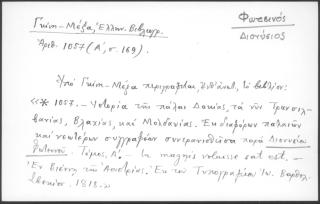 Γκίνη - Μέξα, Ελλην. Βιβλιογρ.
Φωτεινός
Διονύσιος
Αριθ. 1057 (Α', σ. 169).
Υπό Γκίνη - Μέξα περιγράφεται, το βιβλίον:
«* 1057. - Ιστορία της πάλαι Δακίας, τα νυν Τρανσιλ-
βανίας, Βλαχίας, και Μολδανίας. Εκ διαφόρων παλαιών
και νεωτέρων συγγραφέων συνερανισθείσα παρά Διονυσίου
Φωτεινού. Τόμος Α'. - In magnis voluisse sat est. -
Εν Βιέννη της Αουστρίας. Εκ του Τυπογραφείου Ιω. Βαρθολ.
1818.»